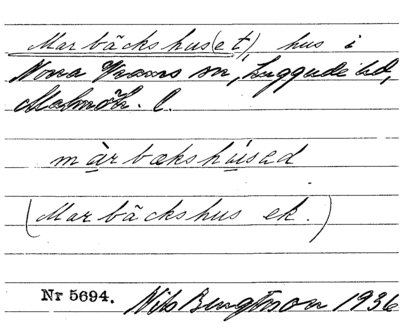 Marbäckshus(et), hus i
Norra Vrams sn, Luggude hd,
Malmöh. l.
màrbækshúsad
(Marbäckshus ek.)
Nr 5694. Nils Bengtsson 1936